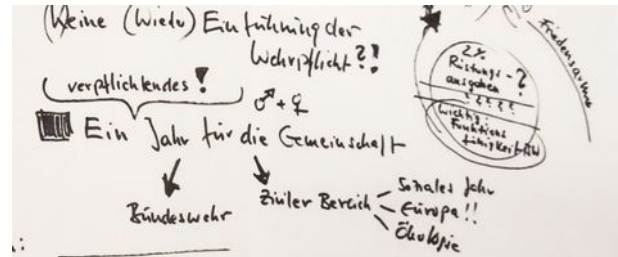 (Keine (Wieder) Einführung der
Wehrpflicht?!
verpflichtendes!
♂+♀
Ein Jahr für die Gemeinschaft
Bundeswehr
Ziviler Bereich
Soziales Jahr
Europa!!
Ökologie
2%
Rüstungs-
ausgaben?
? ? ? ? ?
wichtig:
Funktions
fähigkeit BW